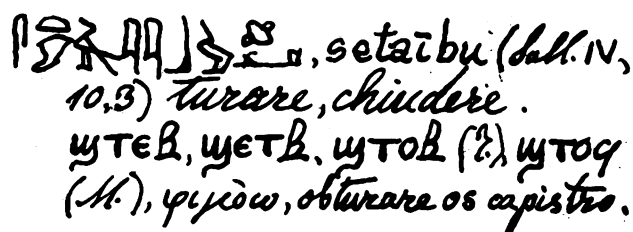 , setaību (Sall. IV,
10,3) turare, chiudere.
ϣⲧⲉⲃ, ϣⲉⲧⲃ, ϣⲧⲟⲃ (T.) ϣⲧⲟϥ
(M.), φιμὸω, obturare os capistro.